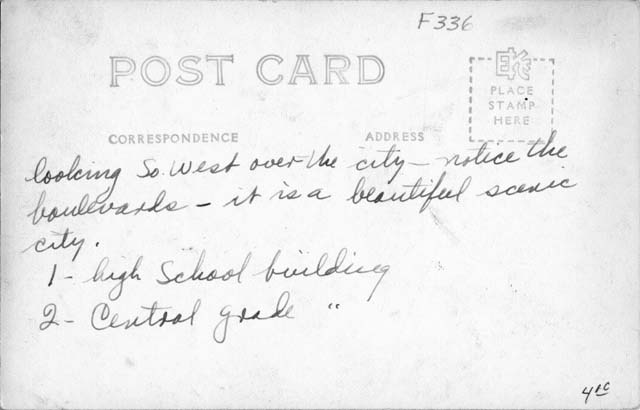 F336
POST CARD
EKC
PLACE
STAMP
HERE
CORRESPONDENCE
ADDRESS
looking So. West over the city - notice the
boulevards - it is a beautiful scenic
city.
1 - high School building
2 - Central grade "